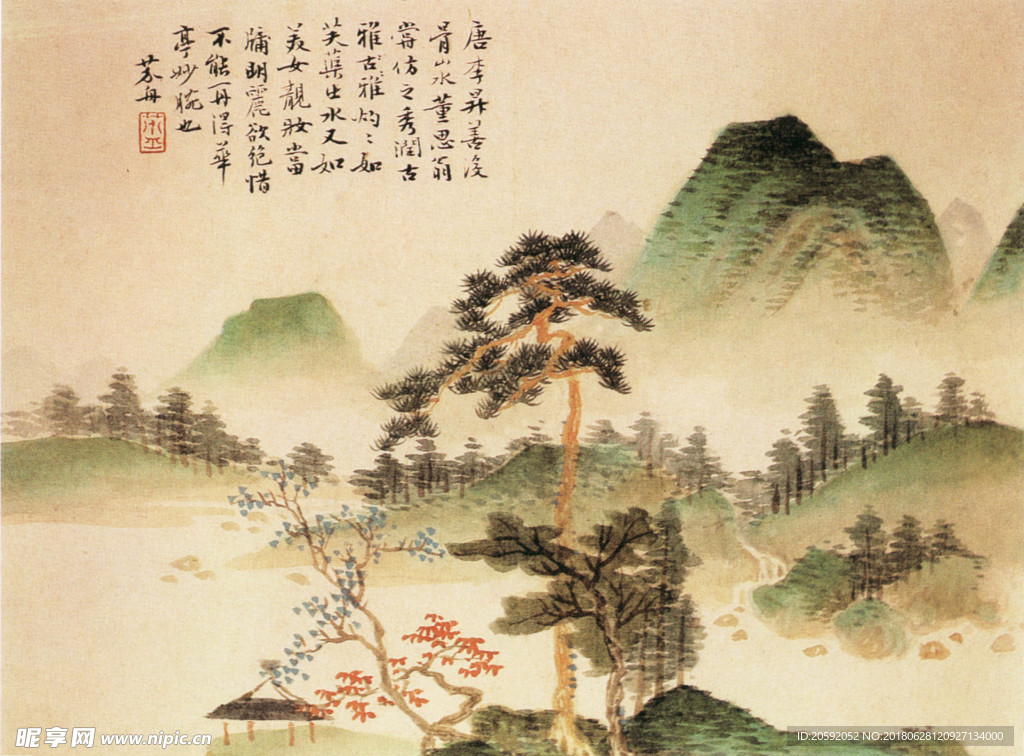 唐李昇善沒
骨山水董思翁
嘗仿之秀潤古
雅古雅灼灼如
芙蕖出水又如
美女靚妝當
牖明麗欲絶惜
不能再得華
亭妙腕也
昵享网 www.nipic.cn
ID:20592052 NO:20180628120927134000